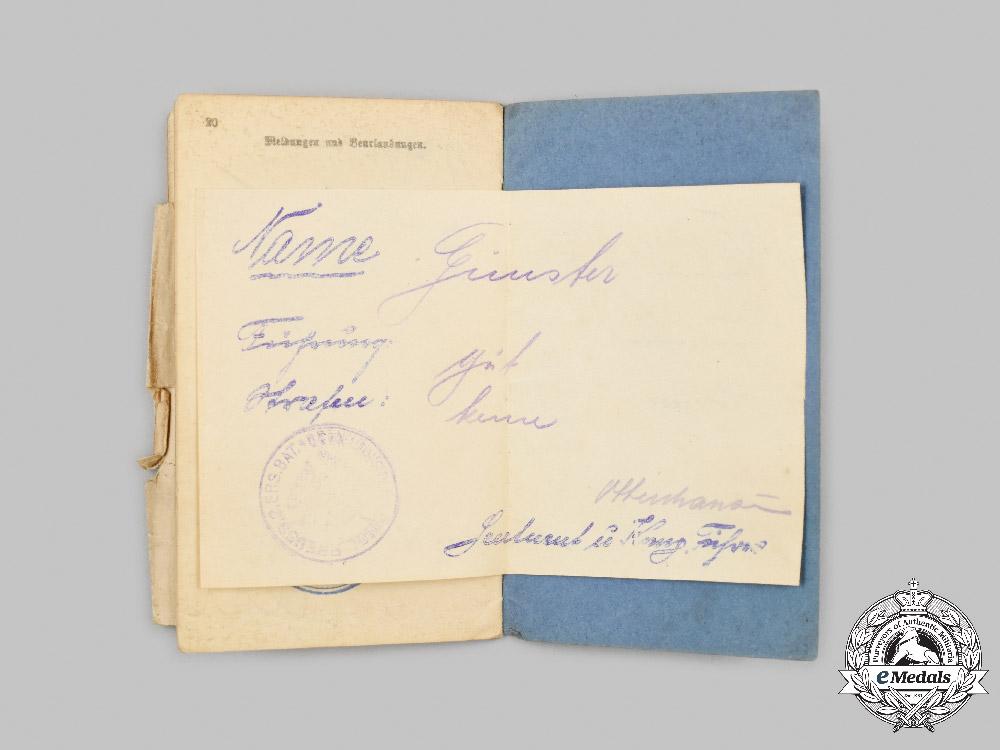 20
Meldungen und Beurlaubungen.
Name Günster
Führung: gut
Strafen: keine
ERS. BAT.
Leutnant u Komp. Führer
Purveyors of Authentic Militaria
eMedals